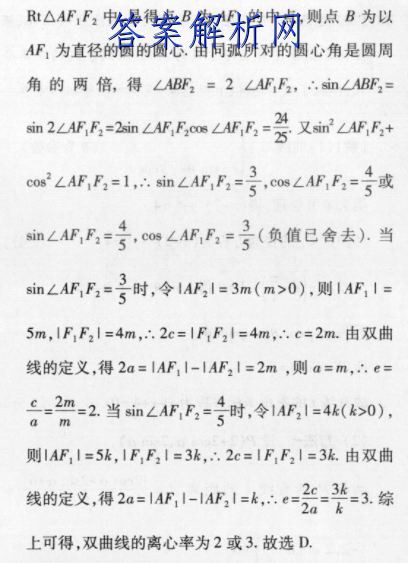 答案解析网
Rt△AF₁F₂ 中,易得点 B 为 AF₁ 的中点,则点 B 为以
AF₁ 为直径的圆的圆心. 由同弧所对的圆心角是圆周
角的两倍,得 ∠ABF₂ = 2 ∠AF₁F₂, ∴ sin∠ABF₂ =
sin 2∠AF₁F₂ = 2sin ∠AF₁F₂cos ∠AF₁F₂ = 24/25. 又sin²∠AF₁F₂ +
cos²∠AF₁F₂ = 1, ∴ sin∠AF₁F₂ = 3/5, cos∠AF₁F₂ = 4/5 或
sin∠AF₁F₂ = 4/5, cos ∠AF₁F₂ = 3/5 (负值已舍去). 当
sin∠AF₁F₂ = 3/5 时, 令 |AF₂| = 3m (m>0), 则 |AF₁| =
5m, |F₁F₂| = 4m, ∴ 2c = |F₁F₂| = 4m, ∴ c = 2m. 由双曲
线的定义,得 2a = |AF₁| - |AF₂| = 2m ,则 a = m, ∴ e =
c/a = 2m/m = 2. 当 sin∠AF₁F₂ = 4/5 时, 令 |AF₂| = 4k(k>0),
则 |AF₁| = 5k, |F₁F₂| = 3k, ∴ 2c = |F₁F₂| = 3k. 由双曲
线的定义,得 2a = |AF₁| - |AF₂| = k, ∴ e = 2c/2a = 3k/k = 3. 综
上可得,双曲线的离心率为 2 或 3. 故选 D.